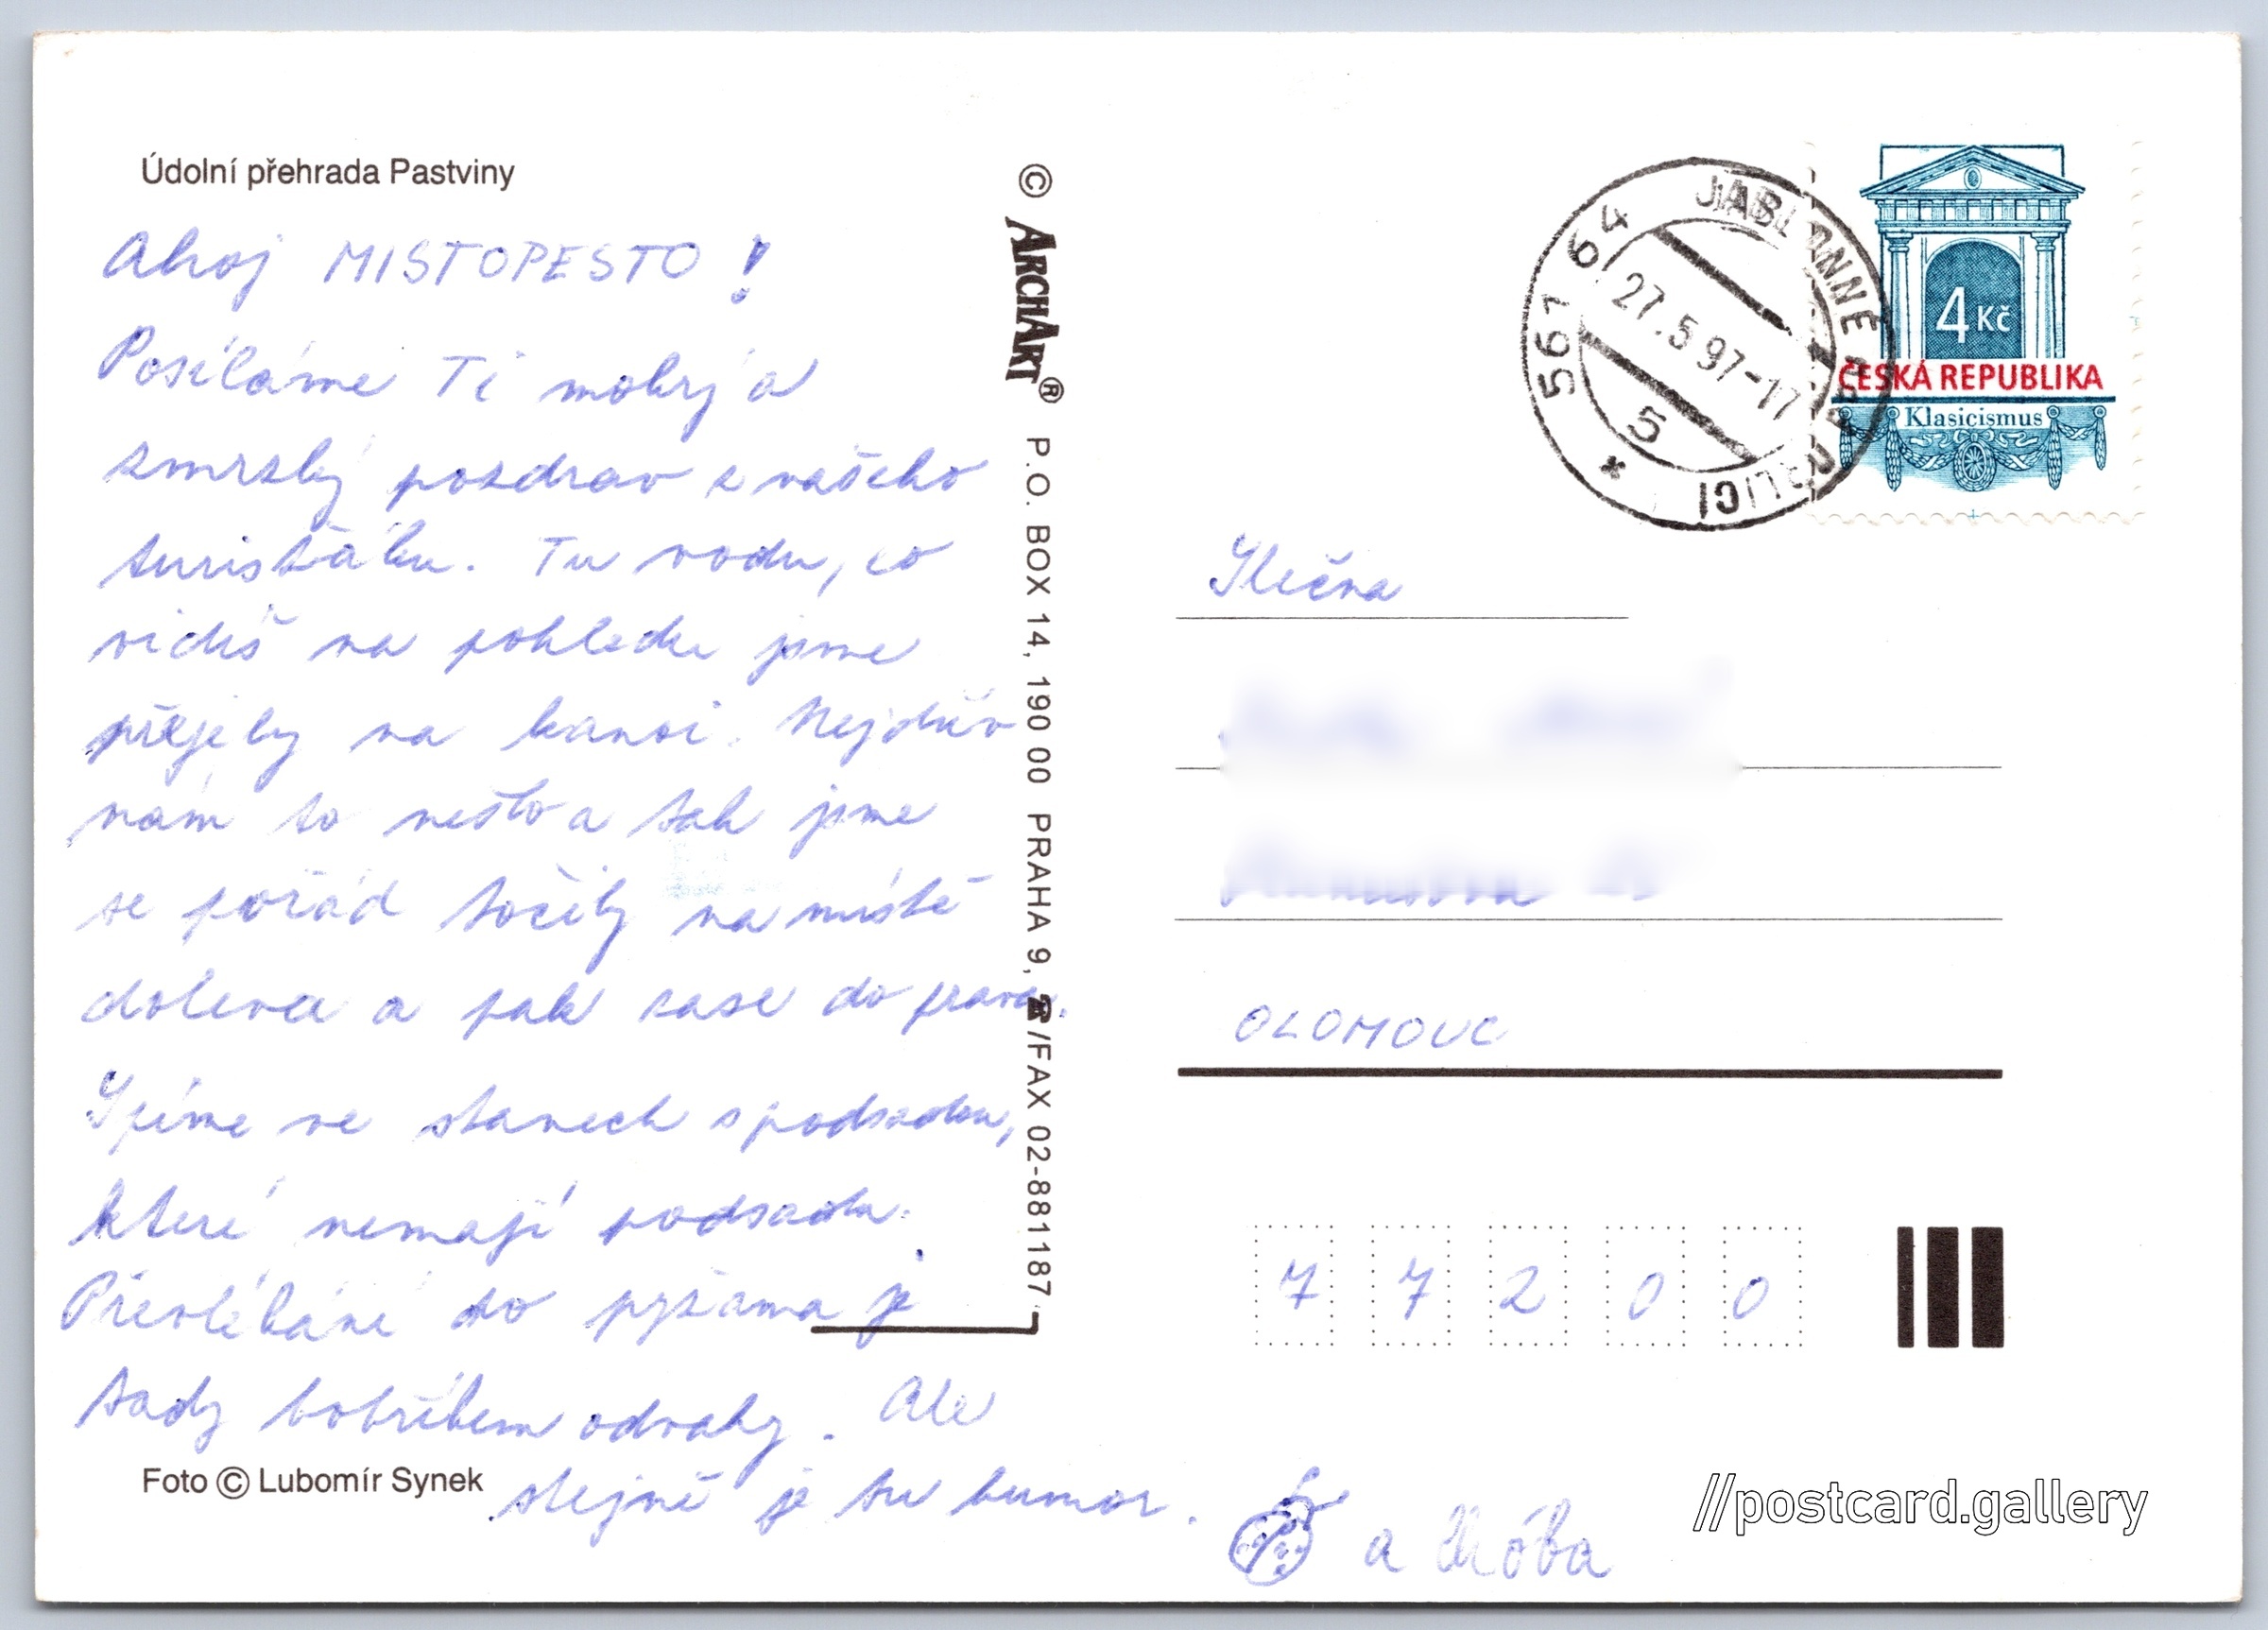 Údolní přehrada Pastviny
Ahoj MISTOPESTO!
Posíláme Ti mokrý a
zmrzlý pozdrav z našeho
turisťáku. Tu vodu, co
vidíš na pohledu jsme
přejely na kanoi. Nejdřív
nám to nešlo a tak jsme
se pořád točily na místě
doleva a pak zase do prava.
Spíme ve stanech s podsadou,
které nemají podsadu.
Převlékání do pyžama je
tady bobříkem odvahy. Ale
stejně je tu humor.
a
Foto © Lubomír Synek
© ARCHART® P.O. BOX 14, 190 00 PRAHA 9, ☎/FAX 02-881187
561 64 JABLONNÉ NAD ORLICÍ
27.5.97-17
5
*
4 Kč
ČESKÁ REPUBLIKA
Klasicismus
Slečna
OLOMOUC
7 7 2 0 0
//postcard.gallery